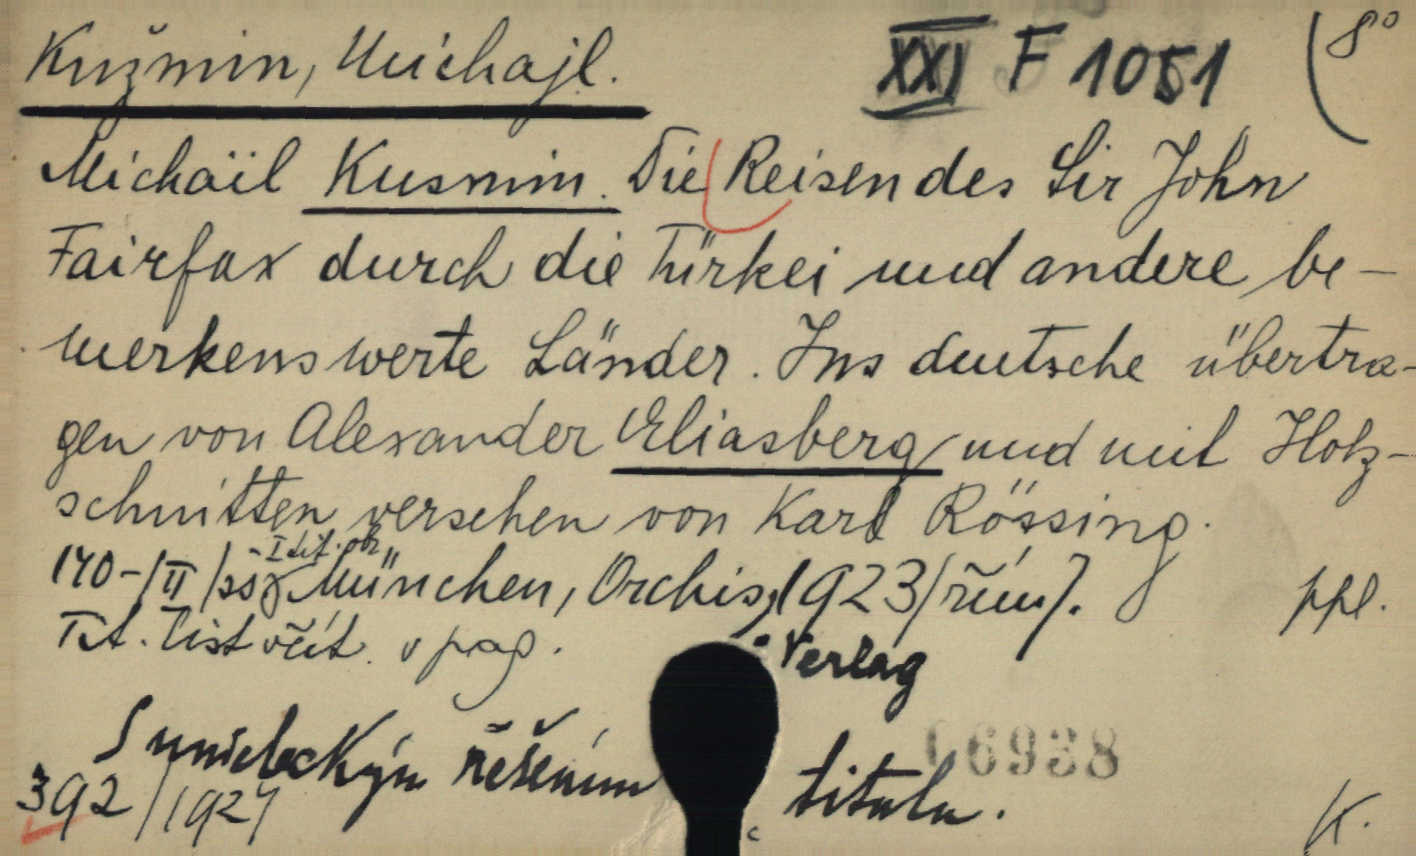 Kuzmin, Michajl.
XXI F 1051
8°
Michaïl Kusmin. Die Reisen des Sir John
Fairfax durch die Türkei und andere be-
merkenswerte Länder. Ins deutsche übertra-
gen von Alexander Eliasberg und mit Holz-
schnitten versehen von Karl Rössing.
140-/II/ München, Orchis, 1923/řím/.
ppl.
Tit. list včít. v pag.
Verlag
S uměleckým řešením titulu.
06938
392/1927
K.